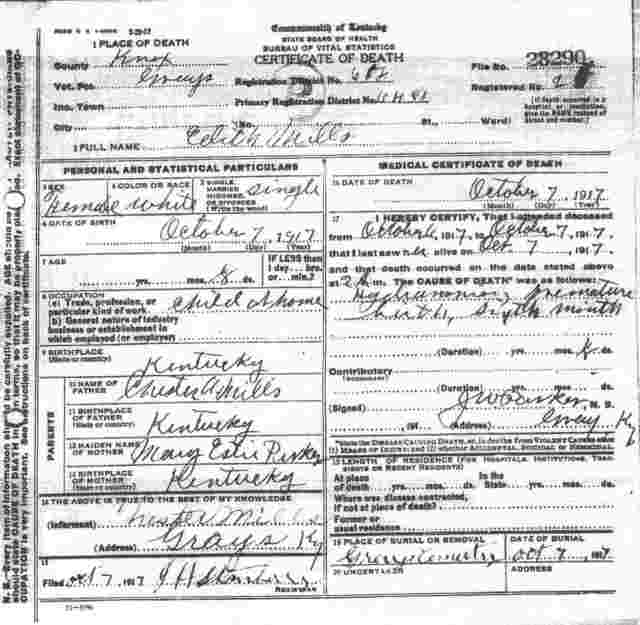 5-29-17
Commonwealth of Kentucky
STATE BOARD OF HEALTH
BUREAU OF VITAL STATISTICS
CERTIFICATE OF DEATH
1 PLACE OF DEATH
County Knox
Vot. Pct. Grays
Inc. Town
City
Registration District No.
Primary Registration District No.
(No. St., Ward)
File No. 28290
Registered No.
[If death occurred in a hospital or institution, give its NAME instead of street and number.]
2 FULL NAME Edith Mills
PERSONAL AND STATISTICAL PARTICULARS
3 SEX Female
4 COLOR OR RACE white
5 SINGLE, MARRIED, WIDOWED, OR DIVORCED (Write the word) Single
6 DATE OF BIRTH October 7, 1917
(Month) (Day) (Year)
7 AGE
yrs. mos. ds.
IF LESS than 1 day... hrs. or min.?
8 OCCUPATION
(a) Trade, profession, or particular kind of work Child at home
(b) General nature of industry business or establishment in which employed (or employer)
9 BIRTHPLACE (State or country) Kentucky
PARENTS
10 NAME OF FATHER Mills
11 BIRTHPLACE OF FATHER (State or country) Kentucky
12 MAIDEN NAME OF MOTHER Mary
13 BIRTHPLACE OF MOTHER (State or country) Kentucky
14 THE ABOVE IS TRUE TO THE BEST OF MY KNOWLEDGE
(Informant) Mills
(Address) Grays Ky
15
Filed Oct 7, 1917
REGISTRAR
MEDICAL CERTIFICATE OF DEATH
16 DATE OF DEATH
October 7, 1917
(Month) (Day) (Year)
17 I HEREBY CERTIFY, That I attended deceased
from October 1917, to October 7, 1917,
that I last saw h alive on Oct. 7, 1917,
and that death occurred on the date stated above
at 2 m. The CAUSE OF DEATH* was as follows:
Premature
birth, month
(Duration) yrs. mos. ds.
Contributory
(SECONDARY)
(Duration) yrs. mos. ds.
(Signed) M. D.
, 191 (Address) Gray Ky
*State the DISEASE CAUSING DEATH, or, in deaths from VIOLENT CAUSES state (1) MEANS OF INJURY; and (2) whether ACCIDENTAL, SUICIDAL or HOMICIDAL.
18 LENGTH OF RESIDENCE (FOR HOSPITALS, INSTITUTIONS, TRANSIENTS OR RECENT RESIDENTS)
At place of death yrs. mos. ds. In the State yrs. mos. ds.
Where was disease contracted, if not at place of death?
Former or usual residence
19 PLACE OF BURIAL OR REMOVAL
DATE OF BURIAL
Oct 7, 1917
20 UNDERTAKER
ADDRESS
11-3196
N. B.—Every item of information should be carefully supplied. AGE should be
should state CAUSE OF DEATH in plain terms, so that it may be properly
OCCUPATION is very important. See instructions on back of certificate.